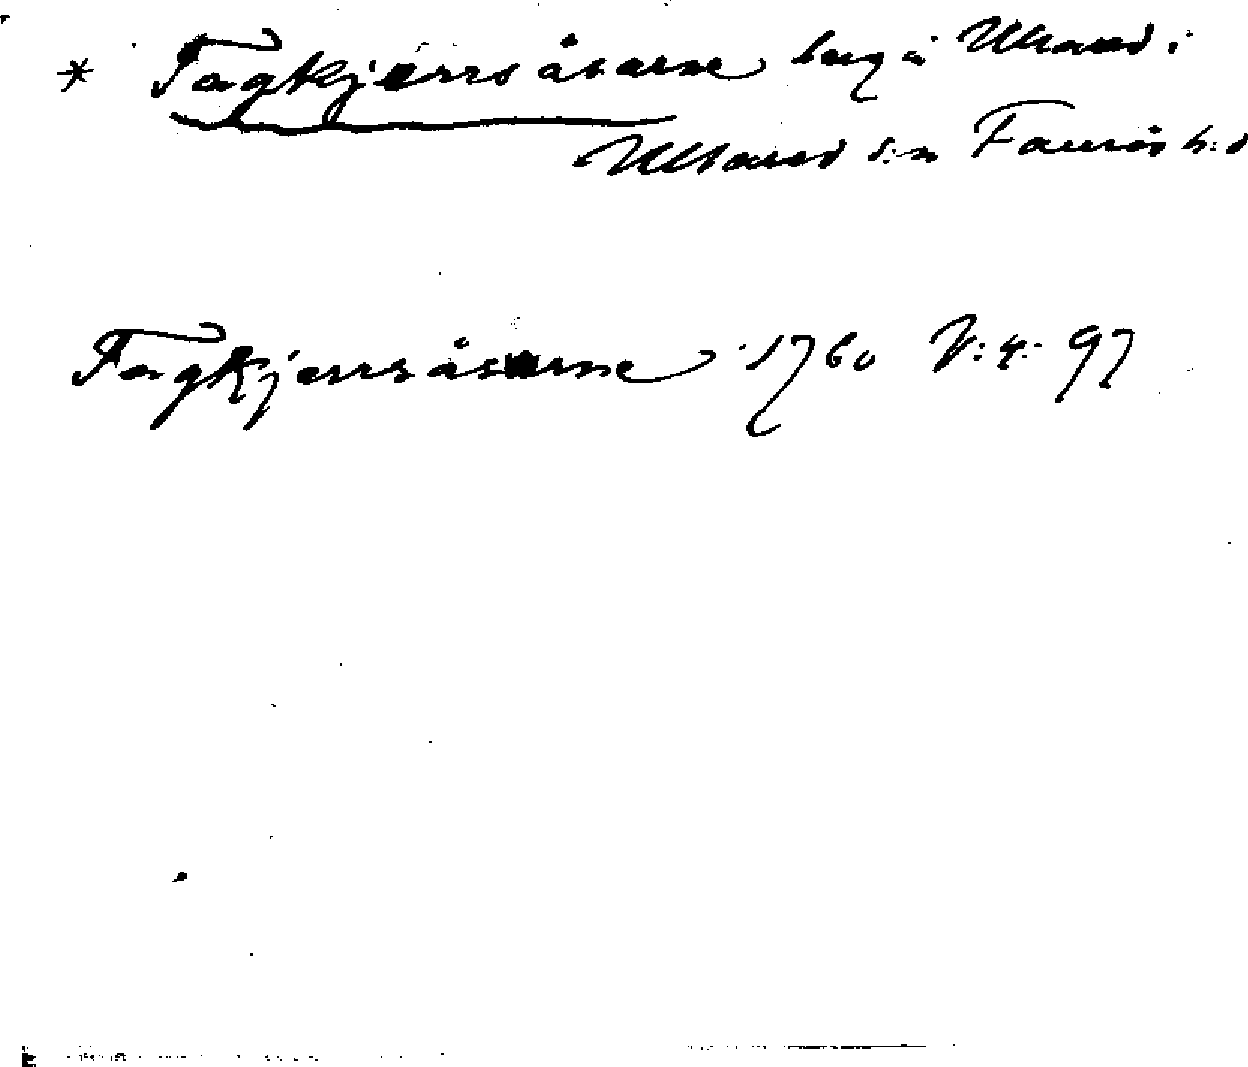 * Tagkjerrsåsarne berg å Ullared i
Ullared s:n Faurås h:d
Tagkjerrsåsarne 1760 V: 4: 97